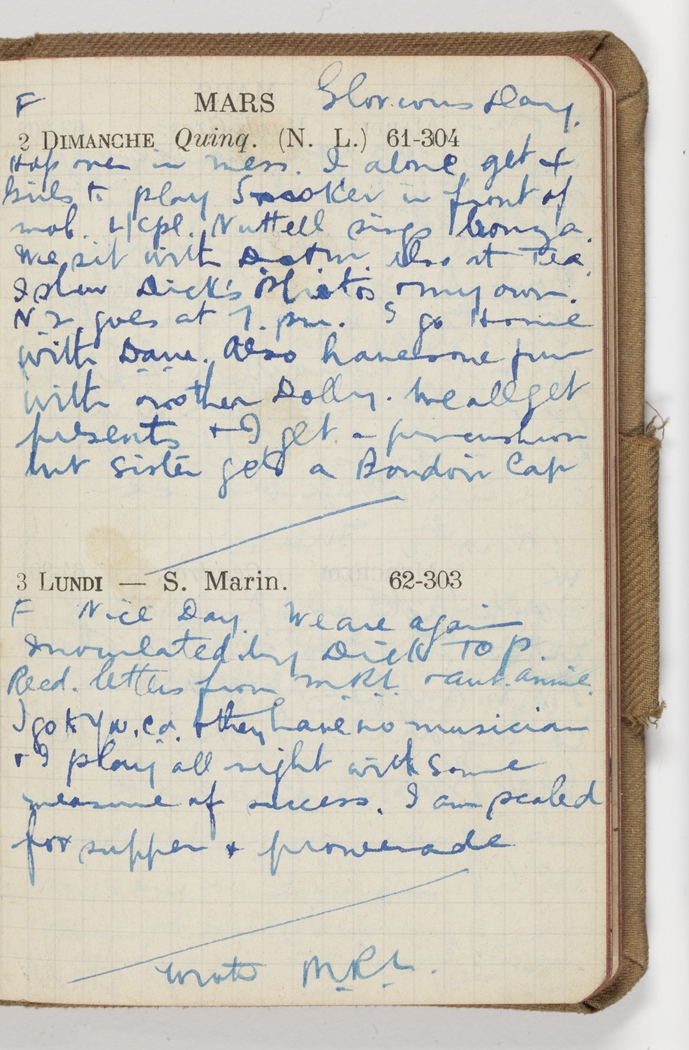 F MARS Glorious Day.
2 DIMANCHE Quinq. (N. L.) 61-304
Hop over in mess. I alone get 4
Girls to play Snooker in front of
mob. L/Cpl. Nuttell sings bonza.
We sit with also at Tea.
I show Dick's Photos + my own.
N 2 goes at 7. pm. I go Home
with Dave. Also have some fun
with mother Dolly. We all get
presents + I get a pin cushion
but Sister gets a Boudoir Cap
3 LUNDI — S. Marin. 62-303
F Nice Day. We are again
innoculated by Dick TOP.
Recd. letters from MRL. + aunt. annie.
I go to Y N. Co. + they have no musician
+ I play all night with some
measure of success. I am sealed
for supper + promenade
wrote M.R.L.